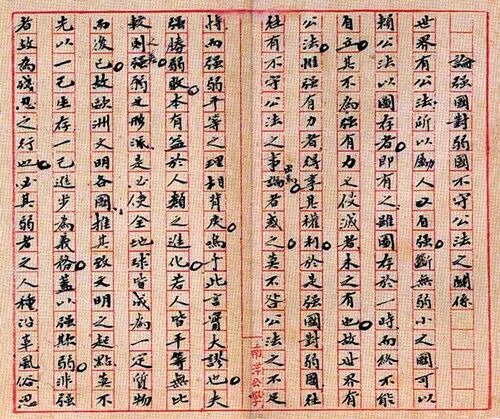 論強國對弱國不守公法之關係
世界有公法所以勵人以自強斷無弱小之國可以
賴公法以圖存者即有之雖圖存於一時而終不能
自立其不為強有力之侵滅者未之有也故世界有
公法惟強有力者得享其權利於是強國對弱國往
往有不守公法之事出焉論者惑之莫不咎公法之不足
恃而強弱平等之理相背戾嗚乎此言實大謬也夫
強勝弱敗本有益於人類之進化若人皆平等無此
較則強弱之形是必使全地球皆成為一定貨物
而後已故歐洲文明各國推其致文明之起點莫不
先以一己生存一己進步為義務蓋以強欺弱非強
者故為殘忍之行也以其弱者之人種沿革風俗思
南洋公學